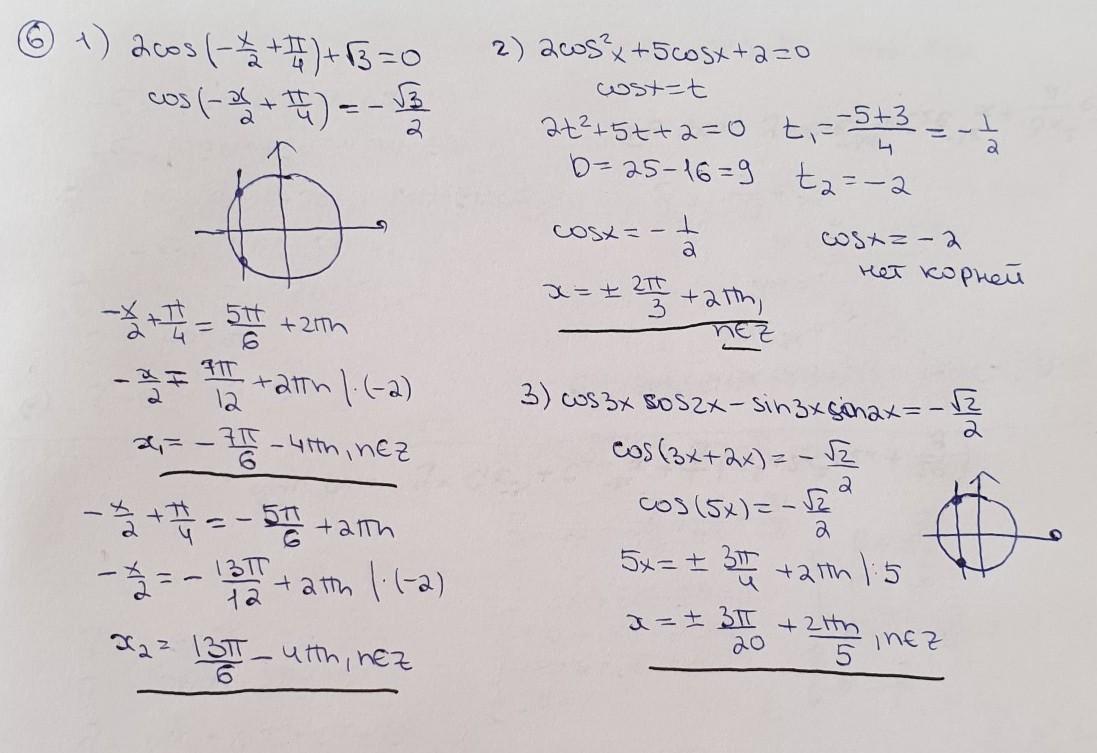 ⑥ 1) 2cos(-x/2 + π/4) + √3 = 0
cos(-x/2 + π/4) = -√3/2
-x/2 + π/4 = 5π/6 + 2πn
-x/2 = 7π/12 + 2πn |·(-2)
x₁ = -7π/6 - 4πn, n∈Z
-x/2 + π/4 = -5π/6 + 2πn
-x/2 = -13π/12 + 2πn |·(-2)
x₂ = 13π/6 - 4πn, n∈Z
2) 2cos²x + 5cosx + 2 = 0
cosx = t
2t² + 5t + 2 = 0 t₁ = (-5+3)/4 = -1/2
D = 25 - 16 = 9 t₂ = -2
cosx = -1/2 cosx = -2
нет корней
x = ± 2π/3 + 2πn,
n∈Z
3) cos3x cos2x - sin3x sin2x = -√2/2
cos(3x+2x) = -√2/2
cos(5x) = -√2/2
5x = ± 3π/4 + 2πn |:5
x = ± 3π/20 + 2πn/5, n∈Z